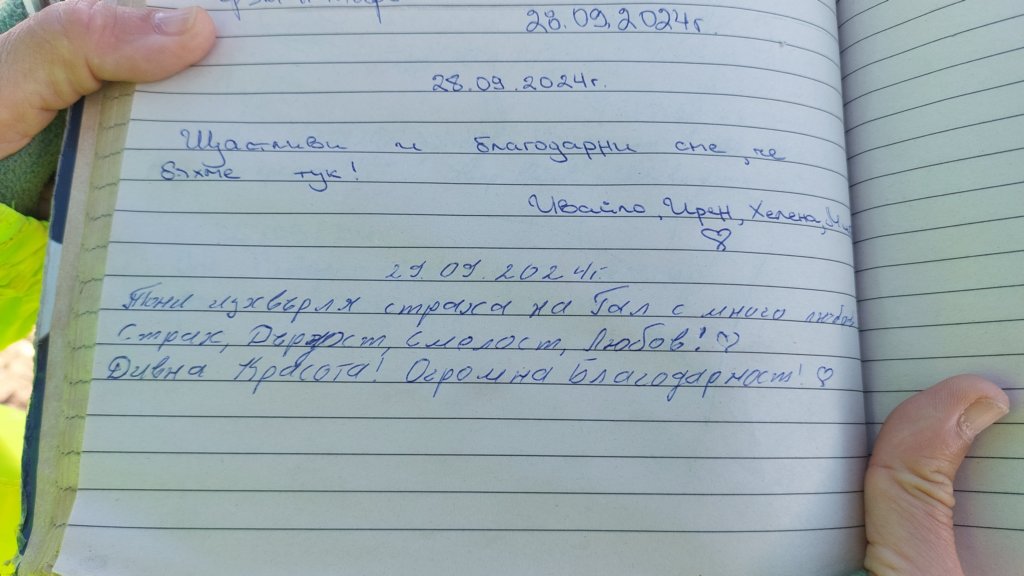 28.09.2024г.
28.09.2024г.
Щастливи и благодарни сме, че
бяхме тук!
Ивайло, Ирен, Хелена,
29.09.2024г.
Тони изхвърля страха на Гал с много любов
Страх, Дързост, Смелост, Любов!
Дивна Красота! Огромна Благодарност!